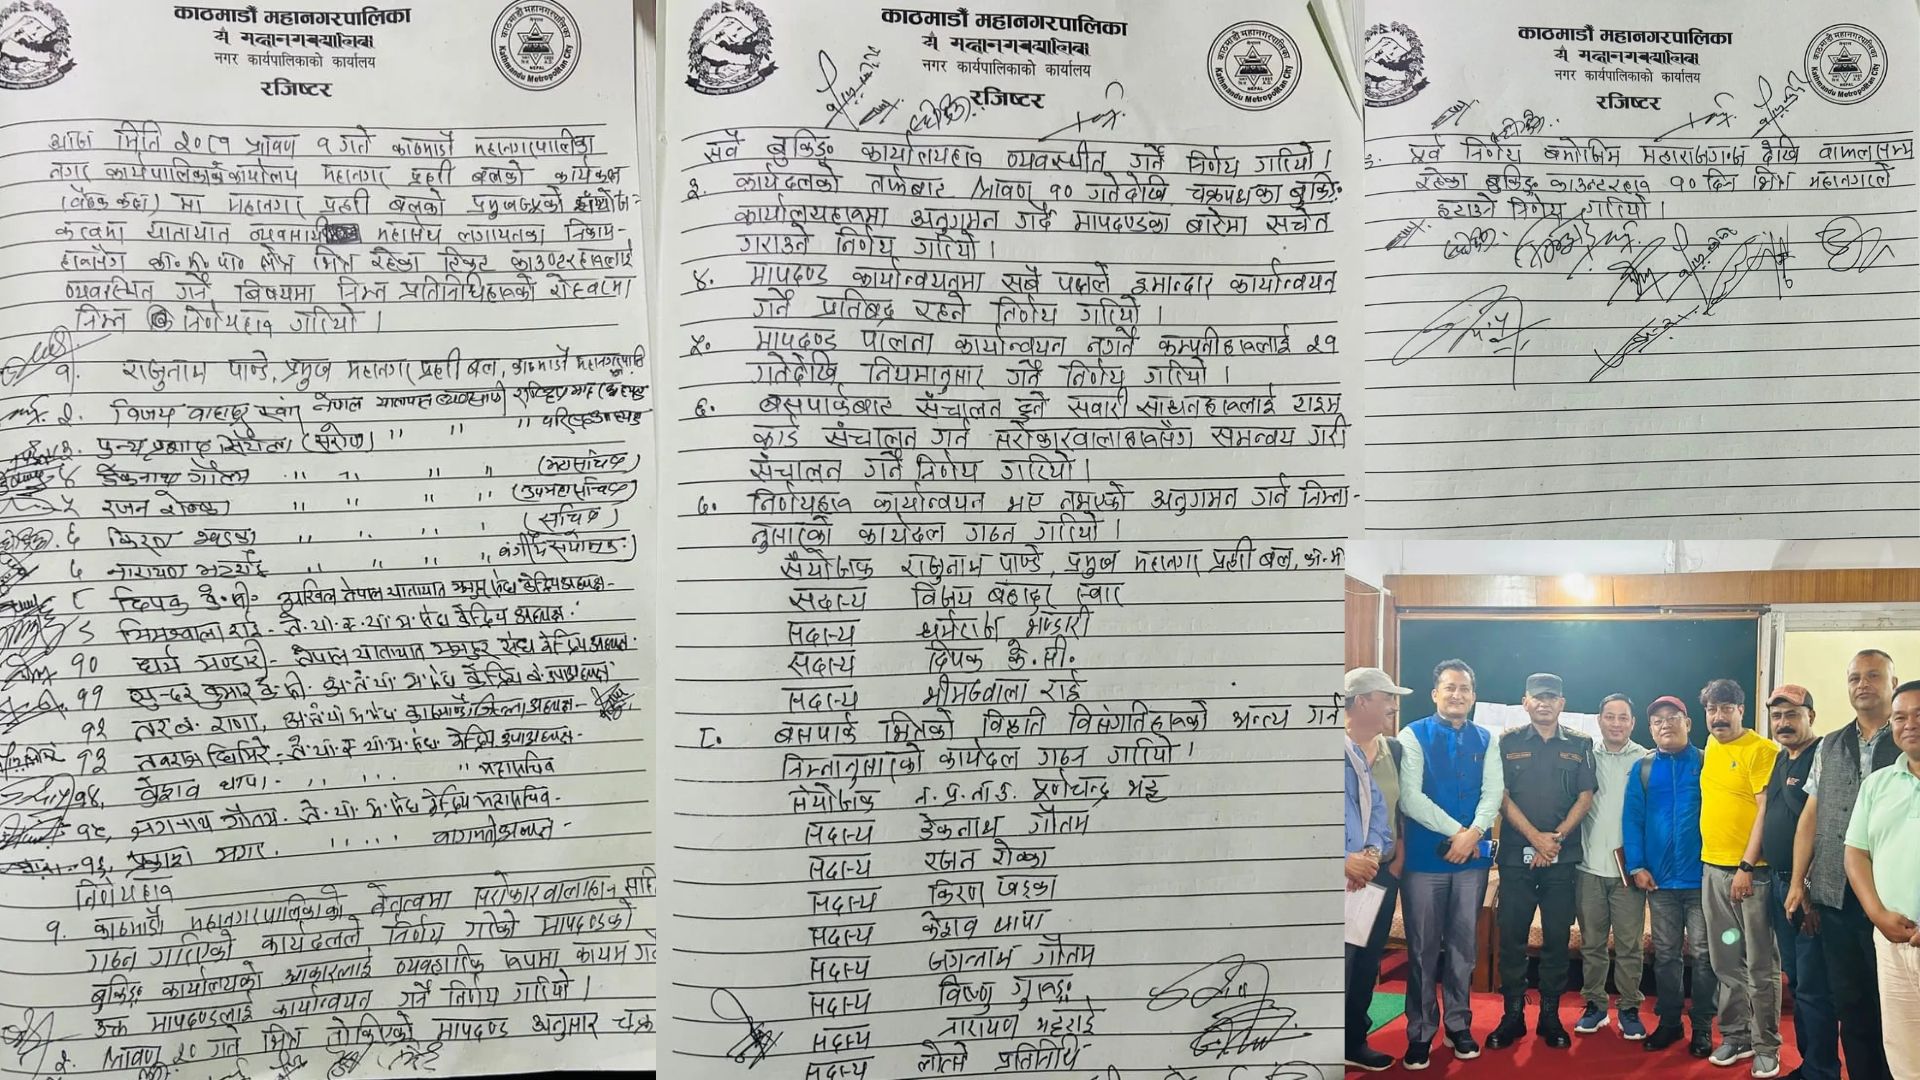 काठमाडौं महानगरपालिका
नगर कार्यपालिकाको कार्यालय
रजिष्टर
आज मिति २०८१ श्रावण १ गते काठमाडौं महानगरपालिका
नगर कार्यपालिकाको कार्यालय महानगर प्रहरी बलको कार्यकक्ष
(बैठक कक्ष) मा महानगर प्रहरी बलको प्रमुखज्यूको संयोज-
कत्वमा यातायात व्यवसायी महासंघ लगायतका निकाय-
हरुसँग का.म.पा. क्षेत्र भित्र रहेका टिकट काउण्टरहरुलाई
व्यवस्थित गर्ने बिषयमा निम्न प्रतिनिधिहरुको रोहवरमा
निम्न निर्णयहरु गरियो ।
१. राजुनाथ पाण्डे, प्रमुख महानगर प्रहरी बल, काठमाडौं महानगरपालि
२. विजय बहादुर स्वार नेपाल यातायात व्यवसायी राष्ट्रिय महासंघ
३. पुन्य प्रसाद (सरोज) " " "
४ डेकनाथ गौतम " " " " (महासचिव)
५ रजन रोक्का " " " " (उपमहासचिव)
६ किरण खड्का " " " " (सचिव)
७ नारायण भट्टराई " " " "
८ दिपक के.सी. अखिल नेपाल यातायात मजदुर संघ केन्द्रिय अध्यक्ष-
९ भिमज्वाला राई- ने.या.स्व.या.म.संघ केन्द्रिय अध्यक्ष.
१० धर्म भण्डारी- नेपाल यातायात मजदुर संघ केन्द्रिय अध्यक्ष.
११ सुन्दर कुमार के.सी. अ.ने.या.म.संघ केन्द्रिय व.उपाध्यक्ष
१२ तर ब. राना, अ.ने.या.म.संघ काठमाण्डौं जिल्ला अध्यक्ष-
१३ नवराज घिमिरे- ने.या.स्व.या.म.संघ केन्द्रिय उपाध्यक्ष-
१४. केशव थापा- " " " महासचिव
१५. जगनाथ गौतम. ने.या.म.संघ केन्द्रिय महासचिव-
१६. प्रकाश मगर. बागमती अध्यक्ष-
निर्णयहरु
१. काठमाडौं महानगरपालिकाको नेतृत्वमा सरोकारवालाहरु सहि
गठन गरिएको कार्यदलले निर्णय गरेको मापदण्डको
बुकिङ्ग कार्यालयको आकारलाई व्यवहारिक रुपमा कायम गरी
उक्त मापदण्डलाई कार्यान्वयन गर्ने निर्णय गरियो ।
२. श्रावण २० गते भित्र तोकिएको मापदण्ड अनुसार चक्र
काठमाडौं महानगरपालिका
नगर कार्यपालिकाको कार्यालय
रजिष्टर
सबै बुकिङ्ग कार्यालयहरु व्यवस्थीत गर्ने निर्णय गरियो ।
३. कार्यदलको तर्फबाट श्रावण १० गतेदेखि चक्रपथका बुकिङ्ग
कार्यालयहरुमा अनुगमन गर्दै मापदण्डका बारेमा सचेत
गराउने निर्णय गरियो ।
४. मापदण्ड कार्यान्वयनमा सबै पक्षले इमान्दार कार्यान्वयन
गर्न प्रतिबद्ध रहने निर्णय गरियो ।
५. मापदण्ड पालना कार्यान्वयन नगर्ने कम्पनीहरुलाई २१
गतेदेखि नियमानुसार गर्ने निर्णय गरियो ।
६. बसपार्कबाट संचालन हुने सवारी साधनहरुलाई टाइम
कार्ड संचालन गर्न सरोकारवालाहरुसँग समन्वय गरी
संचालन गर्ने निर्णय गरियो ।
७. निर्णयहरु कार्यान्वयन भए नभएको अनुगमन गर्न निम्ना-
नुसारको कार्यदल गठन गरियो ।
संयोजक राजुनाथ पाण्डे, प्रमुख महानगर प्रहरी बल, का.म
सदस्य विजय बहादुर स्वार
सदस्य धर्मराज भण्डारी
सदस्य दिपक के.सी.
सदस्य भीमज्वाला राई
८. बसपार्क भित्रको विकृति विसंगतिहरुको अन्त्य गर्न
निम्नानुसारको कार्यदल गठन गरियो ।
संयोजक न.प्र.ना.उ. पूर्णचन्द्र भट्ट
सदस्य डेकनाथ गौतम
सदस्य रजन रोक्का
सदस्य किरण खड्का
सदस्य केशव थापा
सदस्य जगनाथ गौतम
सदस्य विष्णु गुरुङ्ग
सदस्य नारायण भट्टराई
सदस्य ल्होत्से प्रतिनिधि
काठमाडौं महानगरपालिका
नगर कार्यपालिकाको कार्यालय
रजिष्टर
पूर्व निर्णय बमोजिम महाराजगन्ज देखि बाफलसम्म
रहेका बुकिङ्ग काउन्टरहरु १० दिन भित्र महानगरले
हटाउने निर्णय गरियो ।
Kathmandu Metropolitan City